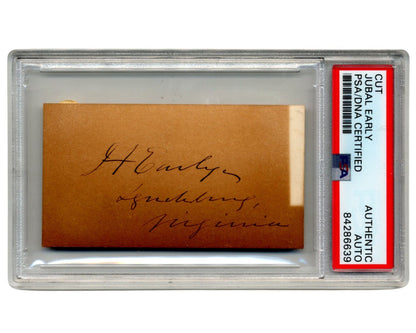 J A Early
Lynchburg,
Virginia
CUT
JUBAL EARLY
PSA/DNA CERTIFIED
PSA
AUTHENTIC
AUTO
84286639